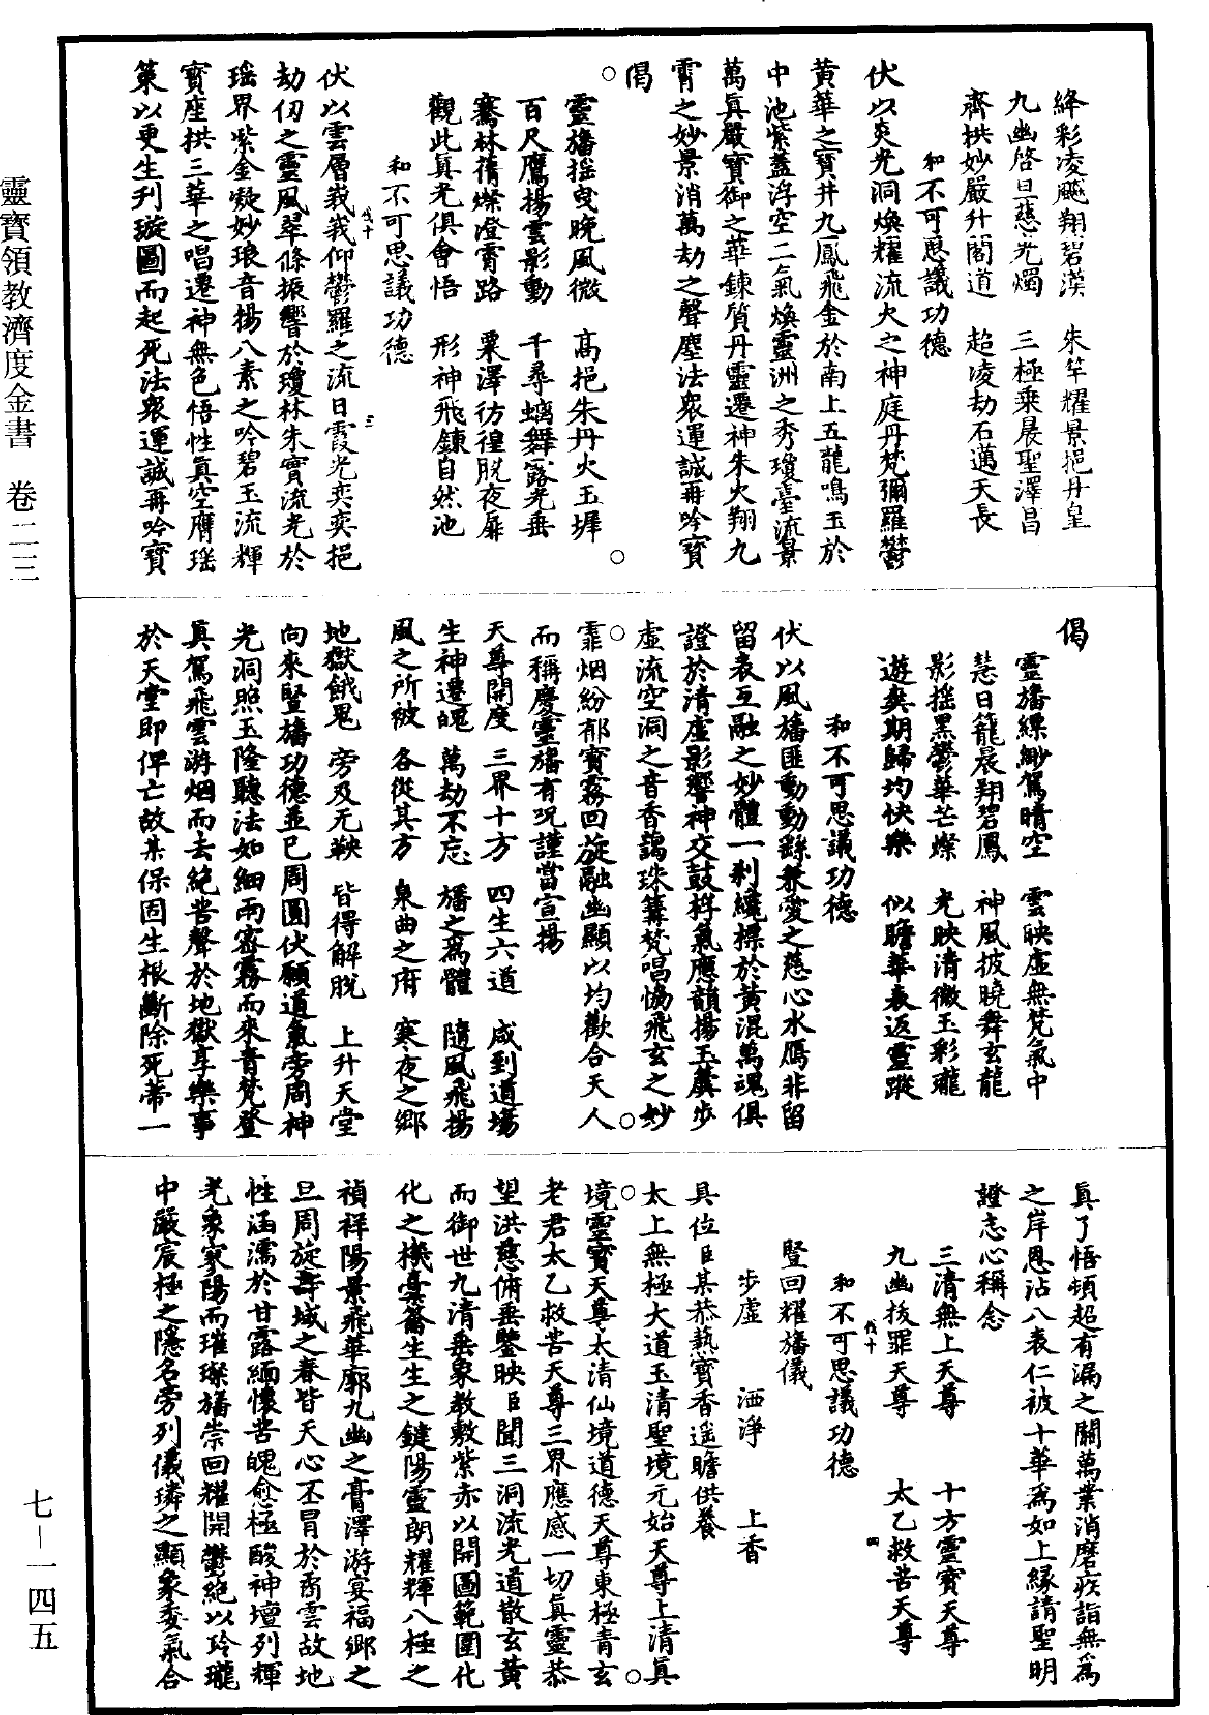 絳彩凌飈翔碧漢　朱竿耀景挹丹皇
九幽啓旦慈光燭　三極乘晨聖澤昌
齊拱妙嚴升閣道　超凌劫石邁天長
和不可思議功德
伏以炎光洞煥耀流火之神庭丹梵彌羅鬱
黃華之寶井九鳳飛金於南上五龍鳴玉於
中池紫蓋浮空二氣煥靈洲之秀瓊臺流景
萬眞嚴寶御之華鍊質丹靈遷神朱火翔九
霄之妙景消萬劫之聲塵法衆運誠再吟寶
偈
靈旛摇曳晚風微　高挹朱丹火玉墀
百尺鷹揚雲影動　千尋螭舞露光垂
騫林蒨燦澄霄路　粟澤彷徨脫夜扉
觀此眞光俱會悟　形神飛鍊自然池
和不可思議功德
伏以雲層峩峩仰鬱羅之流日霞光奕奕挹
劫仞之靈風翠條振響於瓊林朱實流光於
瑶界紫金凝妙琅音揚八素之吟碧玉流輝
寶座拱三華之唱遷神無色悟性眞空膺瑶
策以更生刋璇圖而起死法衆運誠再吟寶
偈
靈旛縹緲駕晴空　雲映虛無梵氣中
慧日籠晨翔碧鳳　神風披曉舞玄龍
影摇黑鬱華芒燦　光映清微玉彩瓏
遊奕期歸均快樂　似瞻華表返靈蹤
和不可思議功德
伏以風旛匪動動繇兼愛之慈心水鴈非留
留表互融之妙體一刹纔標於黃混萬魂俱
證於清虛影響神交鼓桴氣應韻揚玉虡步
虛流空洞之音香靄珠篝梵唱恊飛玄之妙
霏烟紛郁寳霧回旋融幽顯以均歡合天人
而稱慶靈旛有況謹當宣揚
天尊開度　三界十方　四生六道　咸到道場
生神遷魄　萬劫不忘　旛之爲體　隨風飛揚
風之所被　各從其方　泉曲之府　寒夜之鄉
地獄餓鬼　旁及无鞅　皆得解脫　上升天堂
向來竪旛功德並已周圓伏願道氣旁周神
光洞照玉隆聽法如細雨密霧而來青梵登
眞駕飛雲游烟而去絶苦聲於地獄享樂事
於天堂即俾亡故某保固生根斷除死蔕一
眞了悟頓超有漏之關萬業消磨疾詣無爲
之岸恩沾八表仁被十華爲如上緣請聖明
證志心稱念
三清無上天尊　十方靈寶天尊
九幽拔罪天尊　太乙救苦天尊
和不可思議功德
竪回耀旛儀
步虛　洒淨　上香
具位臣某恭爇寶香遥瞻供養
太上無極大道玉清聖境元始天尊上清眞
境靈寶天尊太清仙境道德天尊東極青玄
老君太乙救苦天尊三界應感一切眞靈恭
望洪慈俯垂鑒映臣聞三洞流光道散玄黃
而御世九清垂象教敷紫赤以開圖範圍化
化之機橐籥生生之鍵陽靈朗耀輝八極之
禎祥陽景飛華廓九幽之膏澤游宴福鄉之
旦周旋壽域之春皆天心丕冒於矞雲故地
性涵濡於甘露緬懷苦魄愈極酸神壇列輝
光象家陽而璀璨旛崇回耀開鬱絶以玲瓏
中嚴宸極之隱名旁列儀璘之顯象委氣合
靈寶領教濟度金書　卷二三
七—一四五